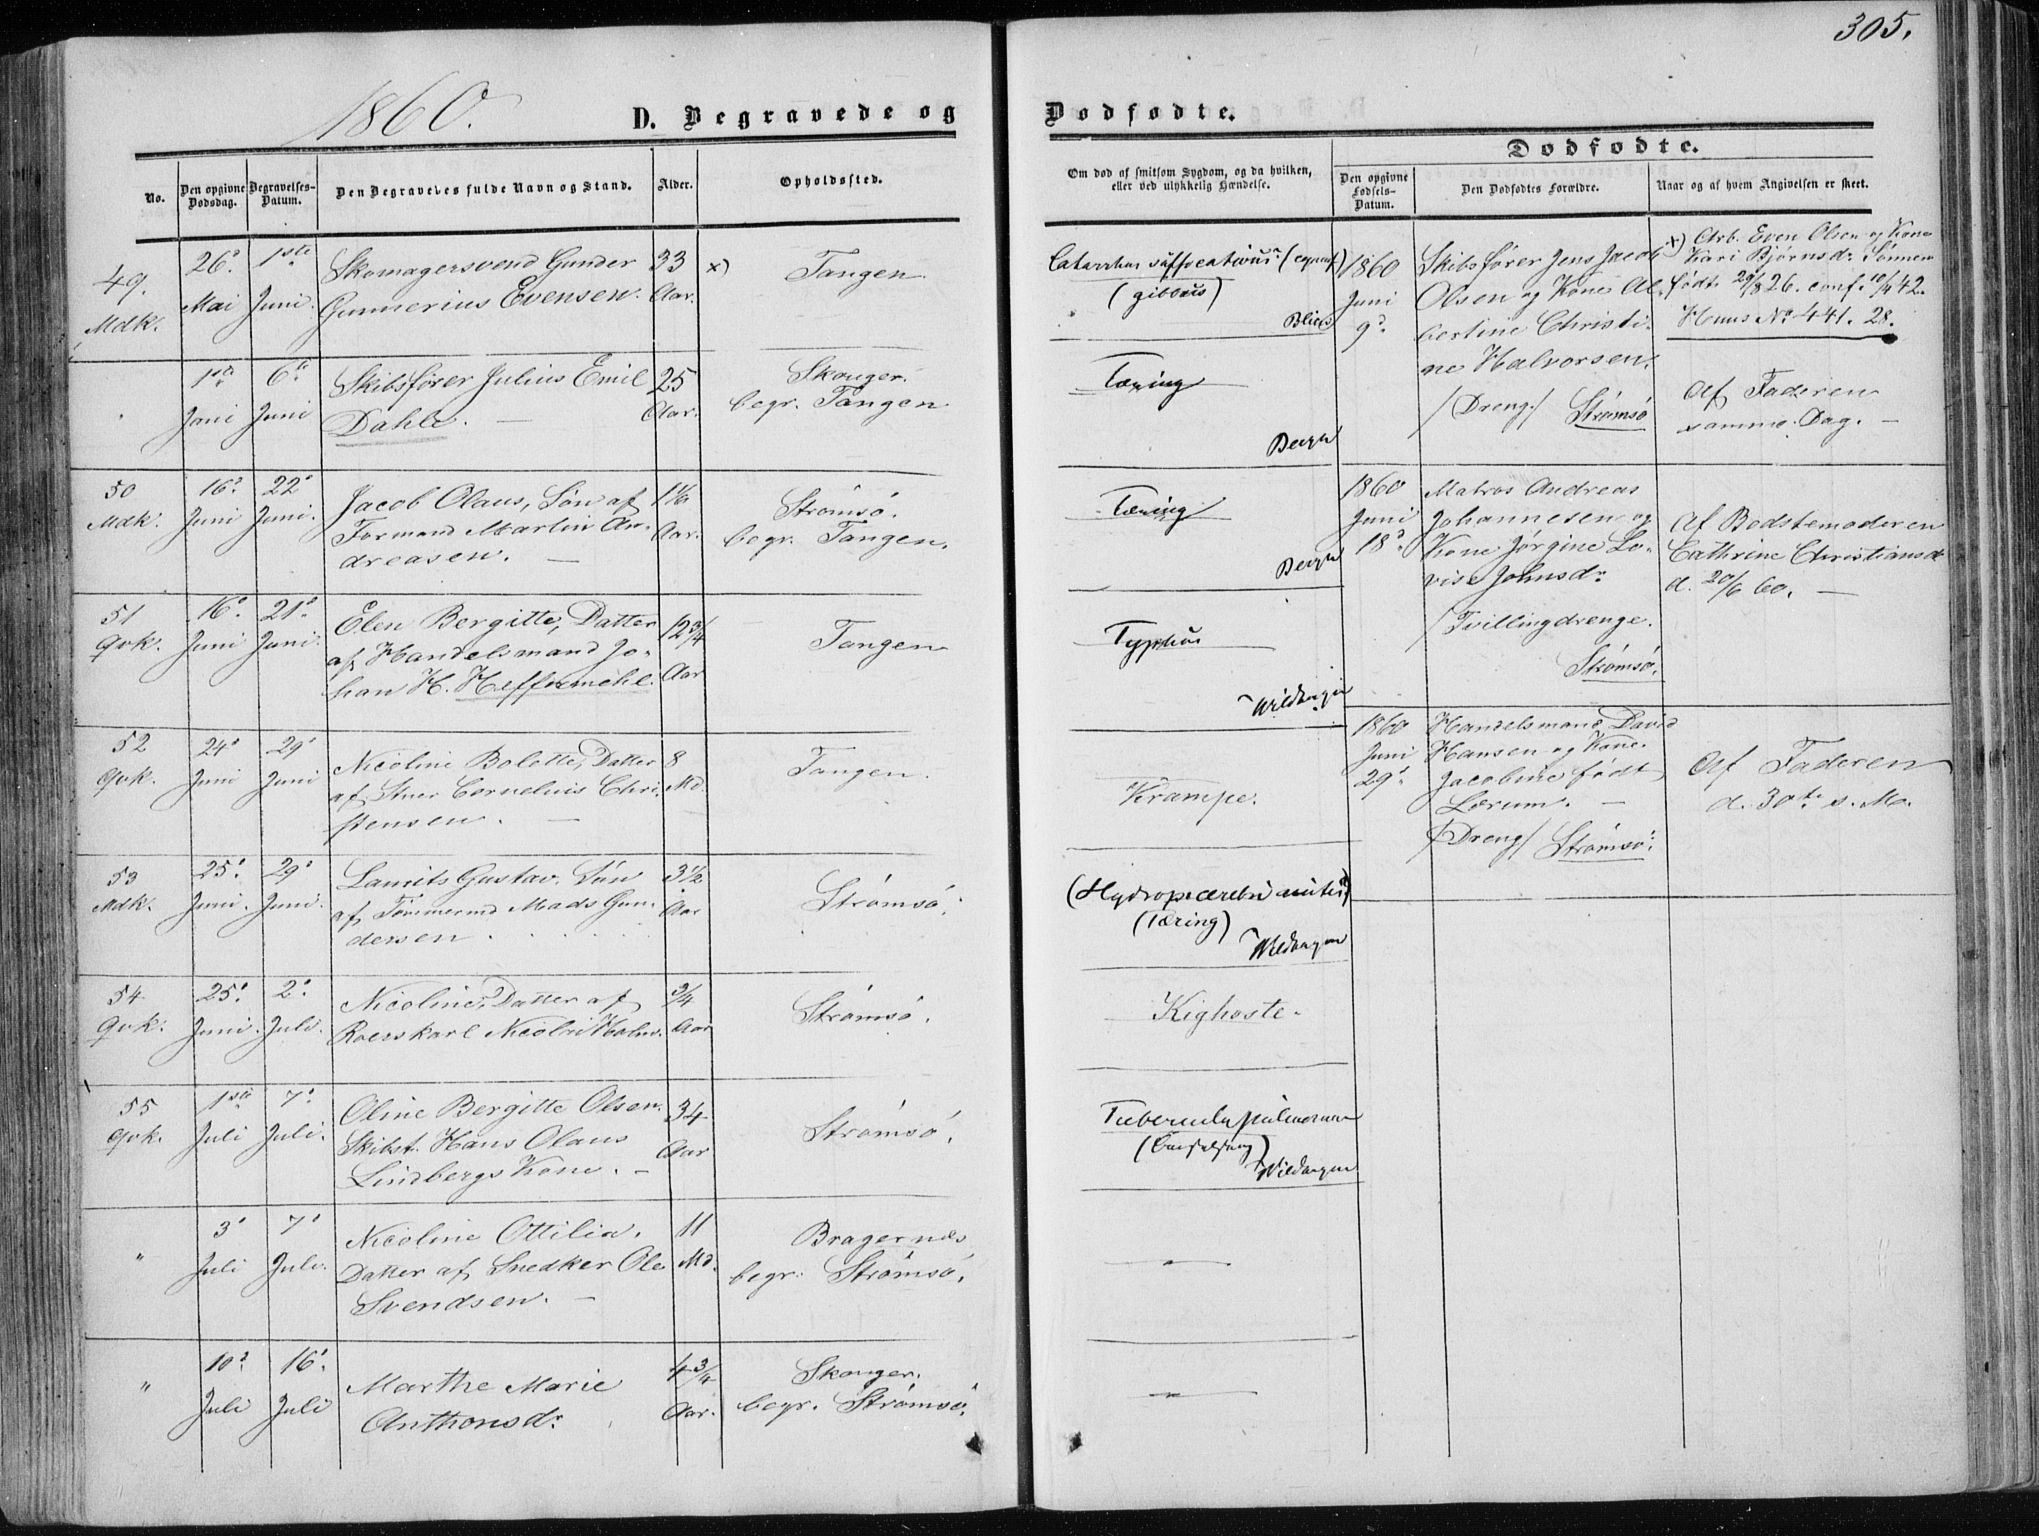 305.
1860.
D. Begravede og
Dødfødte.
No.
Den opgivne Dødsdag.
Begravelses-Datum.
Den Begravedes fulde Navn og Stand.
Alder.
Opholdssted.
49.
Mdk.
26de
Mai
1ste
Juni
Skomagersvend Gunder
Gunnerius Evensen.
33
Aar.
x)
Tangen.
1ste
Juni
6te
Juni
Skibsfører Julius Emil
Dahle.
25
Aar.
Skouger.
begr. Tangen
50
Mdk.
16d
Juni
22d
Juni.
Jacob Olaus, Søn af
Formand Martin An-
dreasen.
Aar.
Strømsø.
begr. Tangen.
51
Qvk.
16d
Juni
21d
Juni.
Elen Bergitte, Datter
af Handelsmand Jo-
han H. Heffermehl.
12 3/4
Aar
Tangen
52
Qvk.
24d
Juni
29d
Juni
Nicoline Bolette, Datter
af Cornelius Chri-
stensen.
8
Md.
Tangen.
53
Mdk.
25d
Juni.
29d
Juni.
Laurits Gustav. Søn
af Tømmermd Mads Gun-
dersen
3 1/2
Aar
Strømsø.
54
Qvk.
25d
Juni.
2d
Juli.
Nicoline, Datter af
Roerskarl Nicolai Holm.
3/4
Aar
Strømsø.
55
Qvk.
1ste
Juli
7d
Juli.
Oline Bergitte Olsen.
Skibst. Hans Olaus
Lindbergs Kone.
34
Aar
Strømsø.
"
3d
Juli
7d
Juli.
Nicoline Ottilia.
Datter af Snedker Ole
Svendsen.
11
Md.
Bragernæs
begr. Strømsø.
"
10d
Juli
16d
Juli
Marthe Marie
Anthonsdr
4 3/4
Aar.
Skouger.
begr. Strømsø.
Om død af smitsom Sygdom, og da hvilken,
eller ved ulykkelig Hændelse.
Catarrhus suffocativus
(gibbus)
Tæring
Tæring
Typhus
Wildhagen
Krampe.
(Tæring)
Wildhagen
Kighoste.
Wildhagen
Dødfødte.
Den opgivne Fødsels-Datum.
Den Dødfødtes Forældre.
Naar og af hvem Angivelsen er skeet.
1860
Juni
9d
Skibsfører Jens Jacob
Olsen og Kone Al-
bertine Christi-
ne Halvorsen.
/Dreng/ Strømsø
x) Arb. Even Olsen og Kone
Kari Bjørnsdr Sønnen
født 29/8 26. conf. 10/4 42.
Huus No 441. 28.
Af Faderen
samme Dag.
1860
Juni
18d
Matros Andreas
Johannesen og
Kone Jørgine Lo-
vise Johnsdr
/Tvillingdrenge.
Strømsø.
Af Bedstemoderen
Cathrine Christiansd
d. 20/6 60.
1860
Juni
29d
Handelsmand David
Hansen og Kone
Jacobine født
Lerum.
/Dreng/ Strømsø.
Af Faderen
d. 30te s. Md.